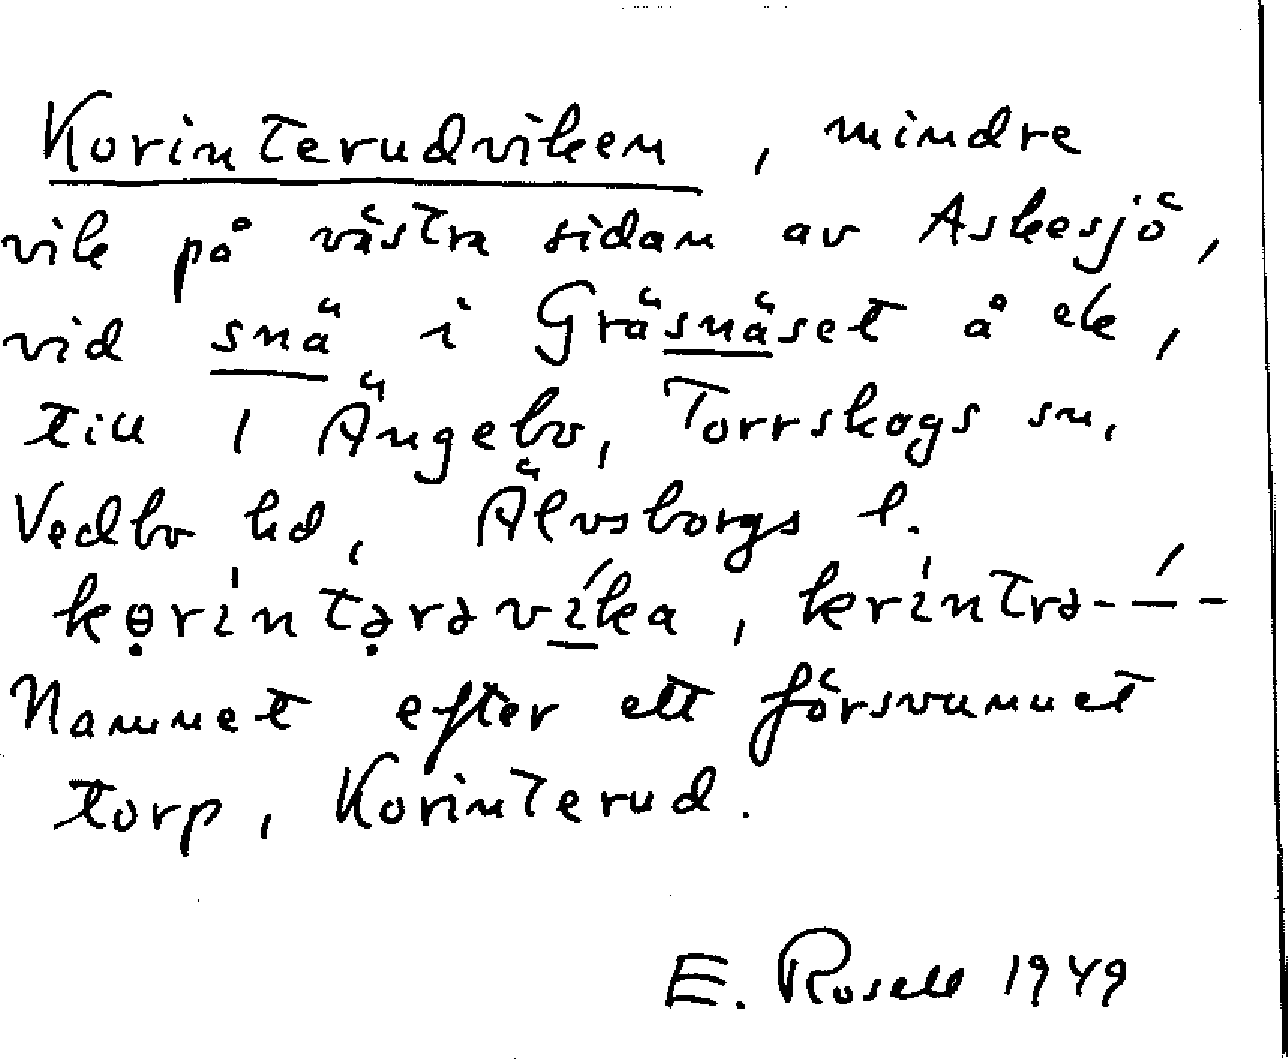 Korinterudviken, mindre
vik på västra sidan av Askesjö,
vid snä i Gräsnäset å ek,
till 1 Ängebo, Torrskogs sn,
Vedbo hd, Älvsborgs l.
kɵ̣ríntə̣rəvíka, kríntrə-–́-
Namnet efter ett försvunnet
torp, Korinterud.
E. Rosell 1949